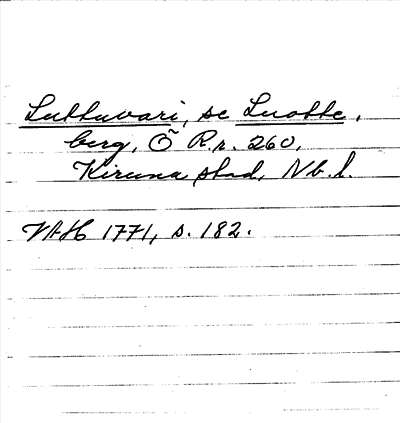 Luttuvari, se Luotte,
berg, Ö R.r. 260,
Kiruna stad, Nb. l.
VAH 1771, s. 182.